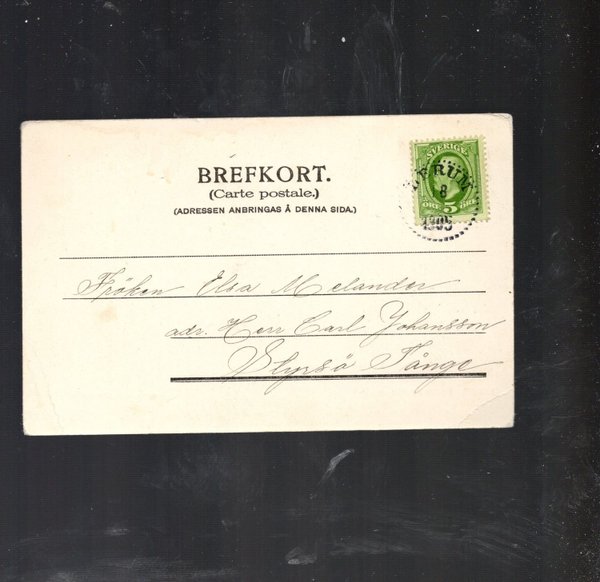 BREFKORT.
(Carte postale.)
(ADRESSEN ANBRINGAS Å DENNA SIDA.)
SVERIGE
ÖRE 5 ÖRE
8
1905
Fröken Elsa Melander
adr. Herr Carl Johansson
Styrsö Tånge